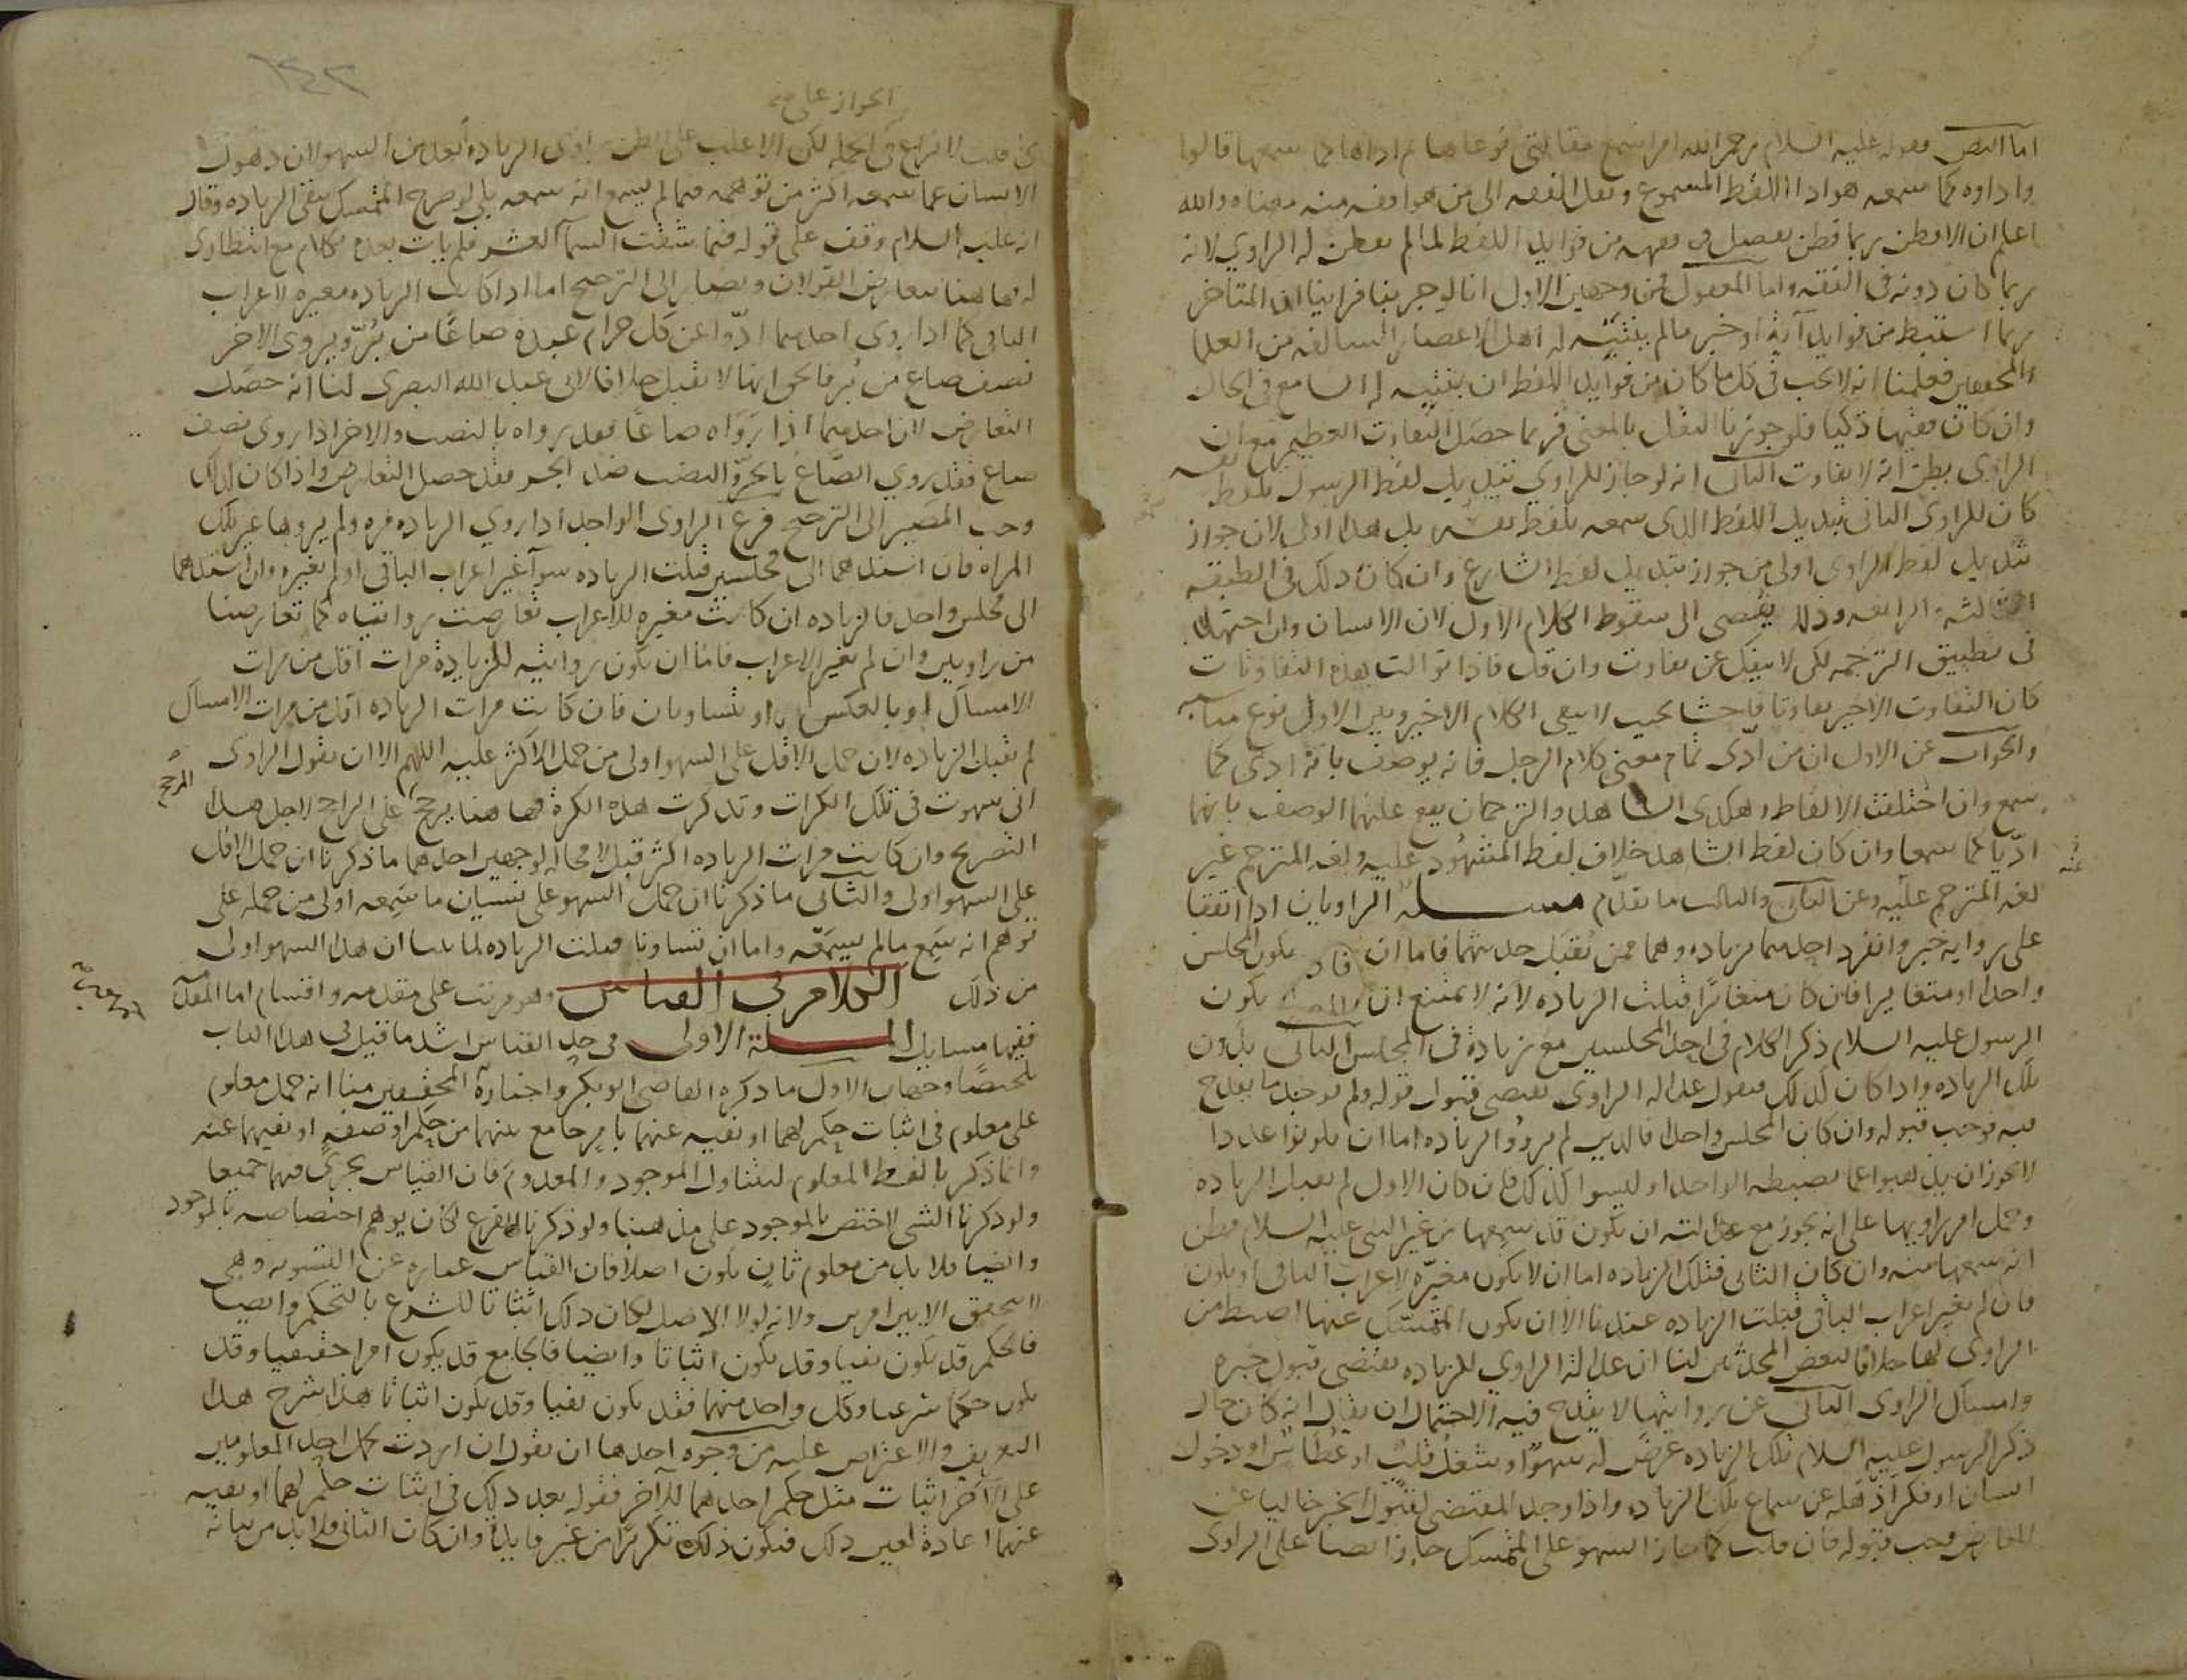 اما النص فقوله عليه السلام رحم الله امرا سمع مقالتي فوعاها ثم اداها كما سمعها قالوا
واداوه كما سمعه هو ادا اللفظ المسموع ونقل الفقه الى من هو افقه منه معناه والله
اعلم ان الافطن ربما فطن بفضل فقهه من فوايد اللفظ لما لم يفطن له الراوي لانه
ربما كان دونه في الفقه واما المعقول فمن وجهين الاول انا لو جربنا فراينا ان المتاخر
ربما استنبط من فوايد آية او خبر ما لم يتنبه له اهل الاعصار السالفه من العلما
والمحققين فعلمنا انه لا يجب في كل ما كان من فوايد اللفظ ان يتنبه له السامع في الحال
وان كان فقيها ذكيا فلو جوزنا النقل بالمعنى فربما حصل التفاوت العظيم مع ان
الراوي يظن انه لا تفاوت الثاني انه لو جاز للراوي تبديل لفظ الرسول بلفظ نفسه
كان للراوي الثاني تبديل اللفظ الذي سمعه بلفظ نفسه بل هذا اولى لان جواز
تبديل لفظ الراوي اولى من جواز تبديل لفظ الشارع وان كان ذلك في الطبقه
الثالثة والرابعه وذلك يفضي الى سقوط الكلام الاول لان الانسان وان اجتهد
في تطبيق الترجمه لكن لا ينفك عن تفاوت وان قل فاذا توالت هذه التفاوتات
كان التفاوت الاخير تفاوتا فاحشا بحيث لا يبقى الكلام الاخير وبين الاول نوع مناسبه
والجواب عن الاول ان من ادّى تمام معنى كلام الرجل فانه يوصف بانه ادى كما
سمع وان اختلفت الالفاظ وهكذى الشاهد والترجمان يقع عليهما الوصف بانهما
ادّيا كما سمعا وان كان لفظ الشاهد خلاف لفظ المشهود عليه ولغه المترجم غير
عنه
لغه المترجم عليه وعن الثاني والثالث ما تقدم مسله الراويان اذا اتفقا
على روايه خبر وانفرد احدهما بزياده وهما ممن يُقبل حديثهما فاما ان يكون المجلس
واحدا او متغايرا فان كان متغايرا قبلت الزياده لانه لا يمتنع ان يكون
الرسول عليه السلام ذكر الكلام في احد المجلسين مع زيادة وفي المجلس الثاني بدون
تلك الزياده واذا كان كذلك فنقول عداله الراوى تقتضى قبول قوله ولم يوجد ما يقدح
فيه فوجب قبوله وان كان المجلس واحدا فالذين لم يرووا الزياده اما ان يكونوا عددا
لا يجوز ان يذهبوا عما يضبطه الواحد او ليسوا كذلك فان كان الاول لم تقبل الزياده
وحمل امر راويها على انه يجوز مع عدالته ان يكون قد سمعها من غير النبي عليه السلام فظن
انه سمعها منه وان كان الثاني فتلك الزياده اما ان لا يكون مغيّره لاعراب الباقي او يكون
فان لم يغير اعراب الباقي قبلت الزياده عندنا الا ان يكون الممسك عنها اضبط من
الراوي لها خلافا لبعض المحدثين لنا ان عدالة الراوي للزياده تقتضى قبول خبره
وامساك الراوى الثاني عن روايتها لا يقدح فيه لاحتمال ان يقال انه كان حال
ذكر الرسول عليه السلام تلك الزياده عرض له سهوٌ او شغلُ قلبٍ او عُطاسٌ او دخول
انسان او فكر اذهله عن سماع تلك الزياده واذا وجد المقتضى لقبول الخبر خاليا عن
المعارض وجب قبوله فان قلت كما جاز السهو على الممسك جاز ايضا على الراوى
الجواز على
قلت لا نزاع في الجمله لكن الاغلب على الظن راوى الزياده ابعد من السهو لان ذهول
الانسان عما سمعه اكثر من توهمه فيما لم يسمع انه سمعه بلى لو صرح الممسك بنفى الزياده وقال
انه عليه السلام وقف على قوله فيما سقت السماء العشر فلم يات بعده بكلام مع انتظاري
له فهاهنا يتعارض القولان ويصار الى الترجيح اما اذا كانت الزياده مغيره لاعراب
الباقي كما اذا روى احدهما ادّوا عن كل حر او عبد صاعًا من بُرّ ويروى الاخر
نصف صاع من بُر فالحق انها لا تقبل خلافا لابي عبد الله البصرى لنا انه حصل
التعارض لان احدهما اذا رَوَاه صاعًا فقد رواه بالنصب والاخر اذا روى نصف
صاع فقد روى الصّاعَ بالجرّ والنصب ضد الجر فقد حصل التعارض واذا كان كذلك
وجب المصير الى الترجيح فرع الراوى الواحد اذا روى الزياده مره ولم يروها غير تلك
المراه فان اسندهما الى مجلسين قبلت الزياده سوآ غير اعراب الباقي او لم يغيره وان اسندهما
الى مجلس واحد فالزياده ان كانت مغيره للاعراب تعارضت روايتاه كما تعارضتا
من راويين وان لم تغير الاعراب فاما ان يكون روايته للزيادة مرات اقل من مرات
الامساك او بالعكس او يتساويان فان كانت مرات الزياده اقل من مرات الامساك
لم تقبل الزياده لان حمل الاقل على السهو اولى من حمل الاكثر عليه اللهم الا ان يقول الراوى
اني سهوت في تلك الكرات وتذكرت هذه الكرة فهاهنا يرجح على الراجح لاجل هذا
المرجح
التصريح وان كانت مرات الزياده اكثر قبل لا محاله لوجهين احدهما ما ذكرنا ان حمل الاقل
على السهو اولى والثاني ما ذكرنا ان حمل السهو على نسيان ما سَمِعه اولى من حمله على
توهم انه سَمِع ما لم يسمَعه واما ان تساويا قبلت الزياده لما بينا ان هذا السهو اولى
من ذلك الكلام في القياس وهو مرتب على مقدمه واقسام اما المقدمه
ففيها مسايل المسلة الاولى في حد القياس اشد ما قيل في هذا الباب
تلخيصًا وجهان الاول ما ذكره القاضى ابو بكر واختاره المحققون منا انه حمل معلوم
على معلوم في اثبات حكم لهما او نفيه عنهما بامرٍ جامع بينهما من حكم او صفه او نفيهما عنه
وانما ذكر بالفظ المعلوم ليتناول الموجود والمعدوم فان القياس يجرى فيهما جميعا
ولو ذكرنا الشى لاختص بالموجود على مذهبنا ولو ذكرنا الفرع لكان يوهم اختصاصه بالموجود
وايضا فلا بد من معلوم ثانٍ يكون اصلا فان القياس عباره عن التسويه وهى
لا تتحقق الا بين امرين ولانه لولا الاصل لكان ذلك اثباتا للشرع بالتحكم وايضا
فالحكم قد يكون نفيا وقد يكون اثباتا وايضا فالجامع قد يكون امرا حقيقيا وقد
يكون حكما شرعيا وكل واحد منهما فقد يكون نفيا وقد يكون اثباتا هذا شرح هذا
التعريف والاعتراض عليه من وجوه احدها ان نقول ان اردت بحمل احد المعلومين
على الآخر اثبات مثل حكم احدهما للآخر فقوله بعد ذلك في اثبات حكم لهما او نفيه
عنهما اعادة لعين ذلك فيكون ذلك تكريرًا من غير فايدة وان كان الثاني فلا بد من بيانه